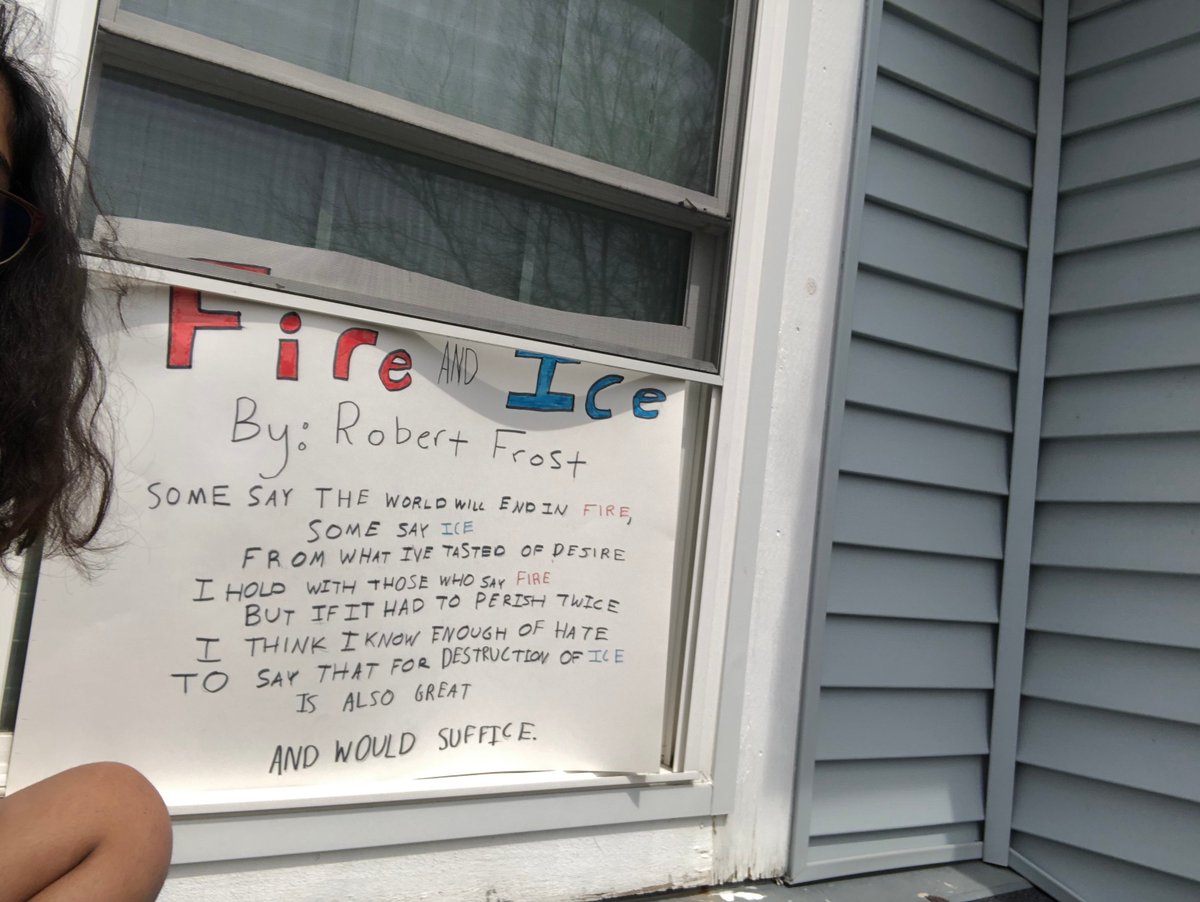 Fire AND Ice
By: Robert Frost
SOME SAY THE WORLD WILL END IN FIRE,
SOME SAY ICE
FROM WHAT I'VE TASTED OF DESIRE
I HOLD WITH THOSE WHO SAY FIRE
BUT IF IT HAD TO PERISH TWICE
I THINK I KNOW ENOUGH OF HATE
TO SAY THAT FOR DESTRUCTION OF ICE
IS ALSO GREAT
AND WOULD SUFFICE.